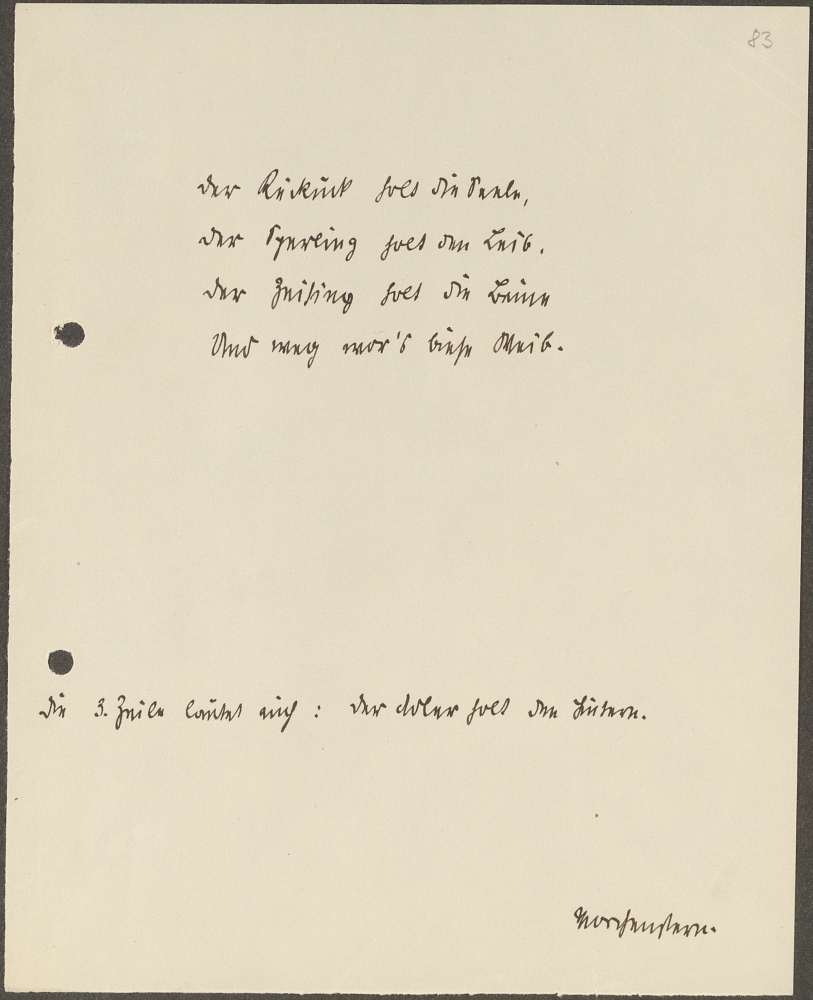 83
der Kuckuck holt die Seele,
der Sperling holt den Leib,
der Zeising holt die Beine
Und weg wor's biese Weib.
die 3. Zeile lautet auch: der Adler holt den
Morchenstern.